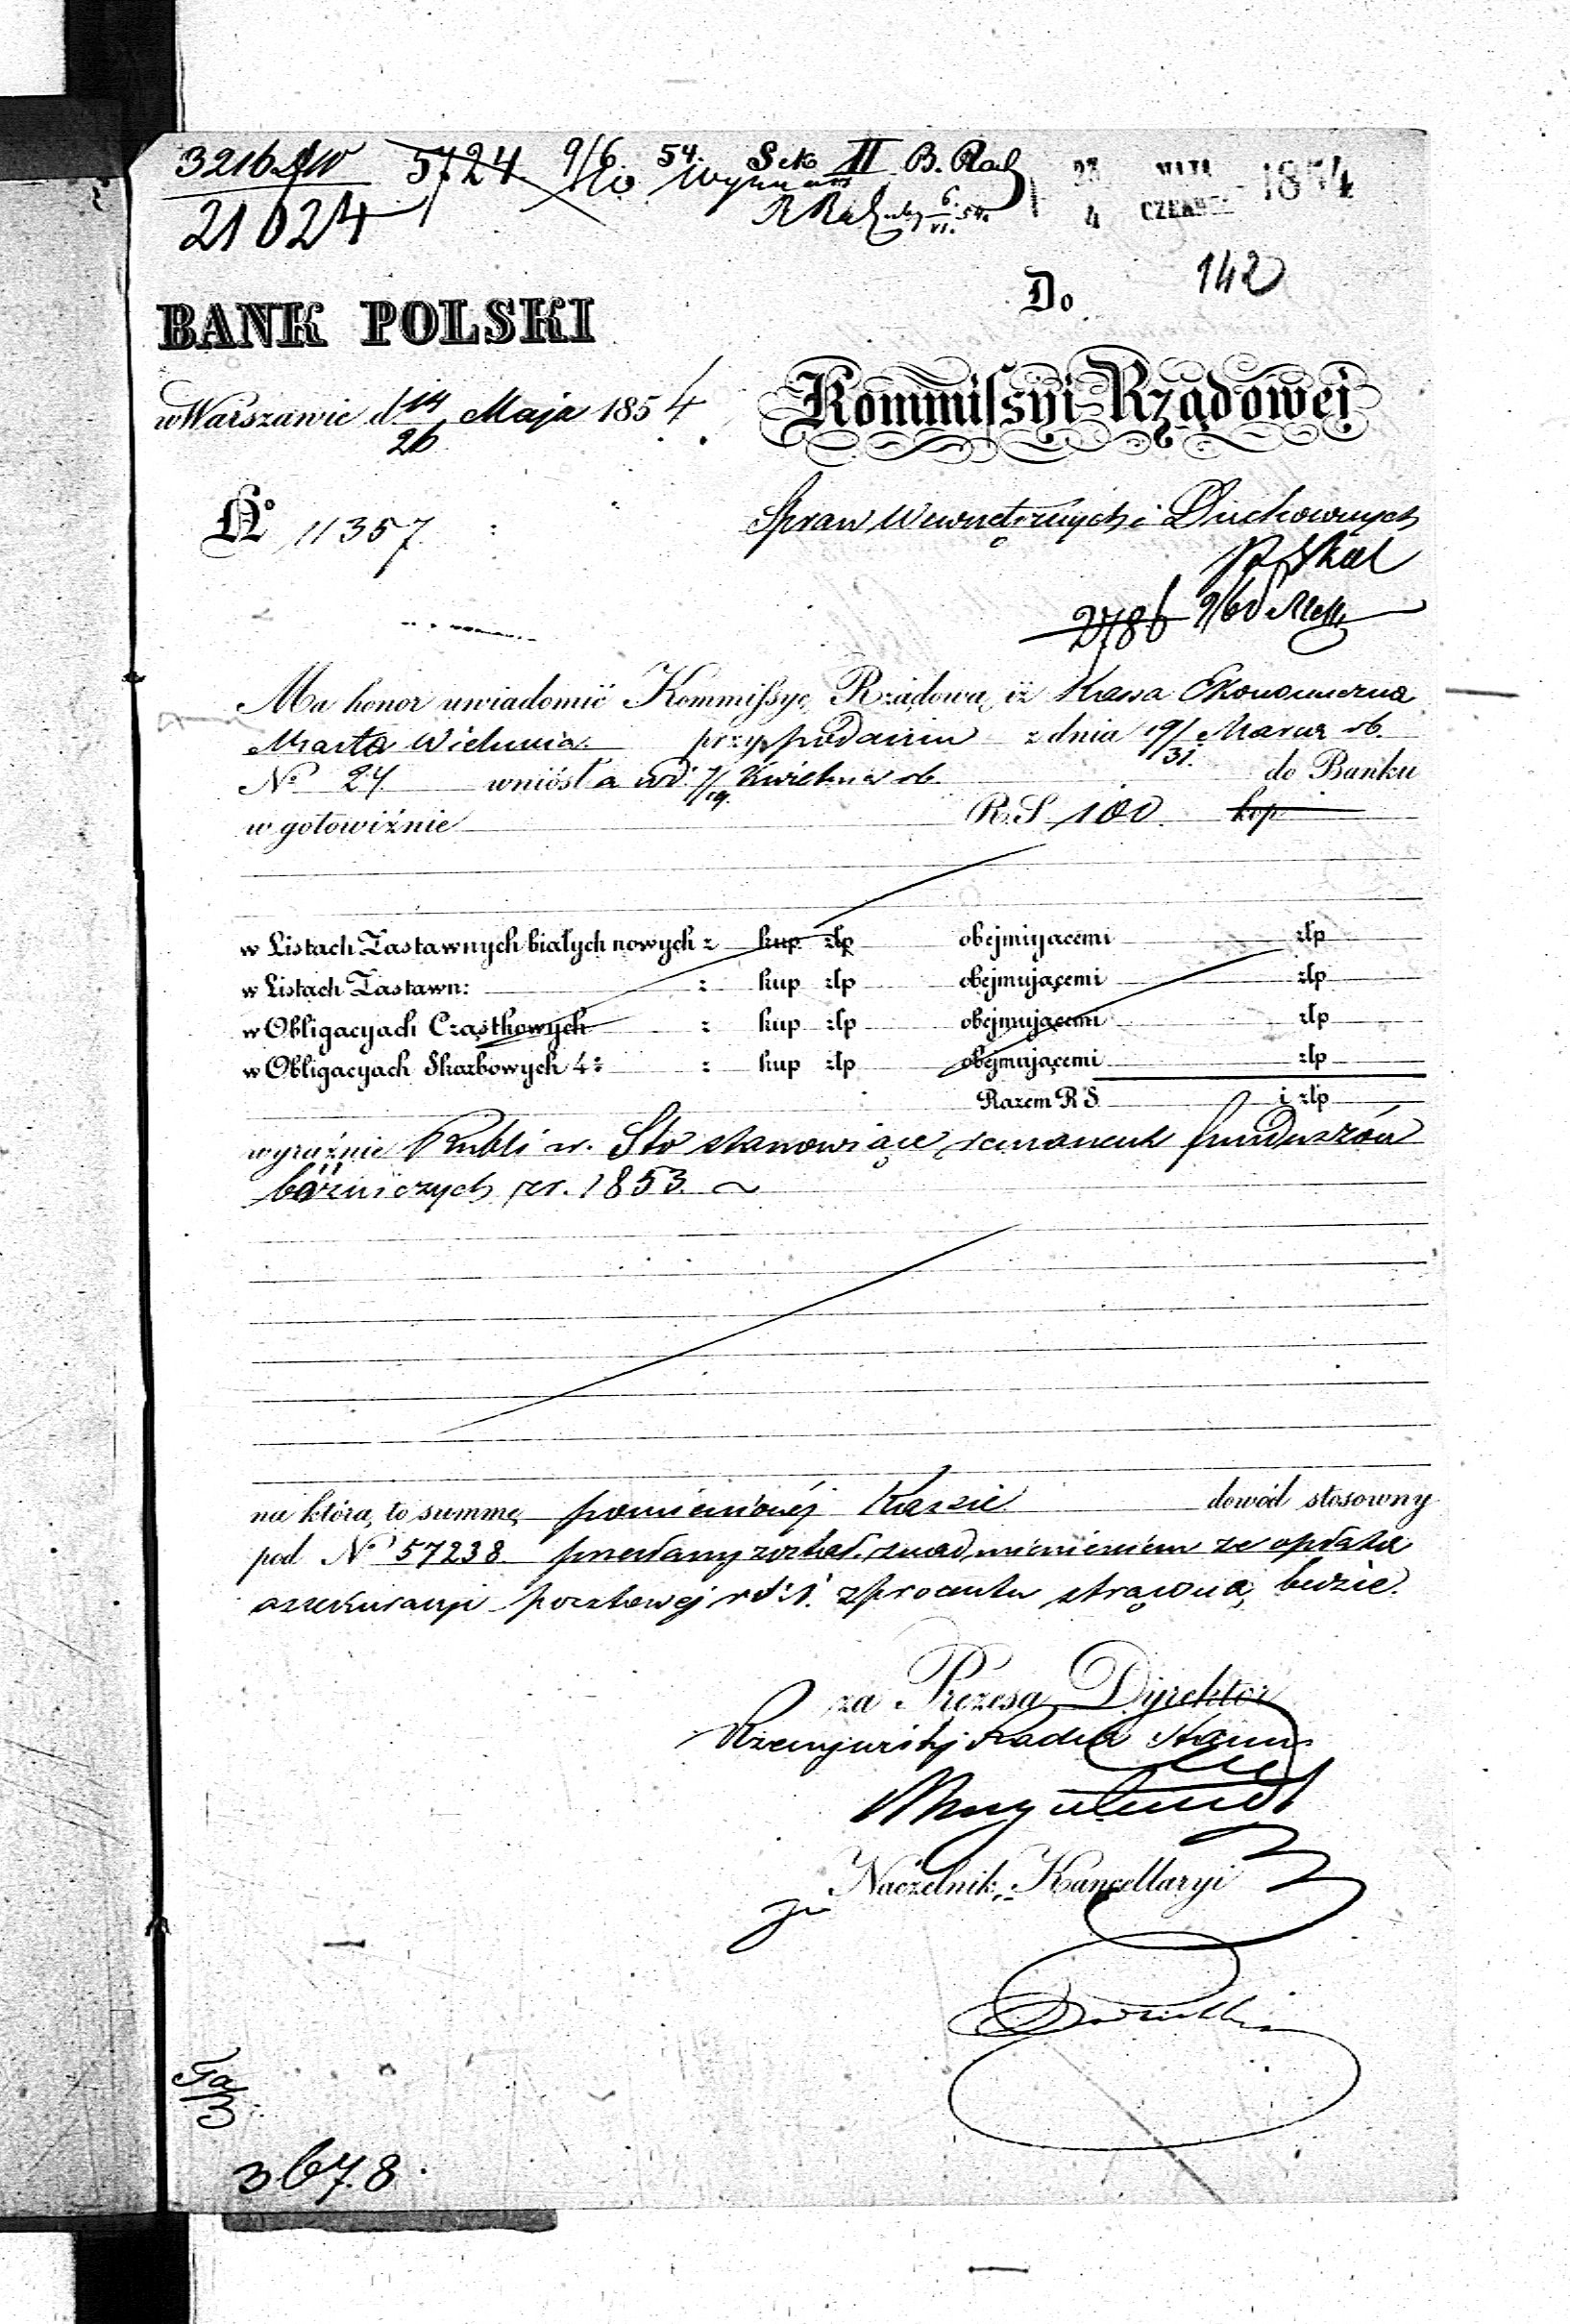 3216 5724 9/6 54. Sek II B. Rad
21024 23 MAJA 1854
4 CZERWCA
142
BANK POLSKI Do
w Warszawie d 14/26 Maja 1854 Kommissyi Rządowej
No 11357 Spraw Wewnętrznych i Duchownych
2786
Ma honor uwiadomić Kommissyę Rządową iż Kassa Ekonomiczna
Miasta Wielunia przy podaniu z dnia 19/31 Marca rb.
No 24 wniosła wd. 7/19 Kwietnia rb. do Banku
w gotowiźnie R.S 100. kop
w Listach Zastawnych białych nowych z kup. złp obejmującemi złp
w Listach Zastawn: z kup złp obejmującemi złp
w Obligacyach Cząstkowych z kup złp obejmującemi złp
w Obligacyach Skarbowych 4% z kup złp obejmującemi złp
Razem R S i złp
wyraźnie Rubli sr. Sto stanowiące remanent funduszów
bóżniczych zr. 1853.
na którą to summę pomienionej Kassie dowód stosowny
pod No 57238 przesłany został, znadmienieniem ze opłata
assekuracyi pocztowej zprocentu strąconą bedzie.
za Prezesa Dyrektor
Rzeczywisty Radca Stanu
Naczelnik Kancellaryi
3678.